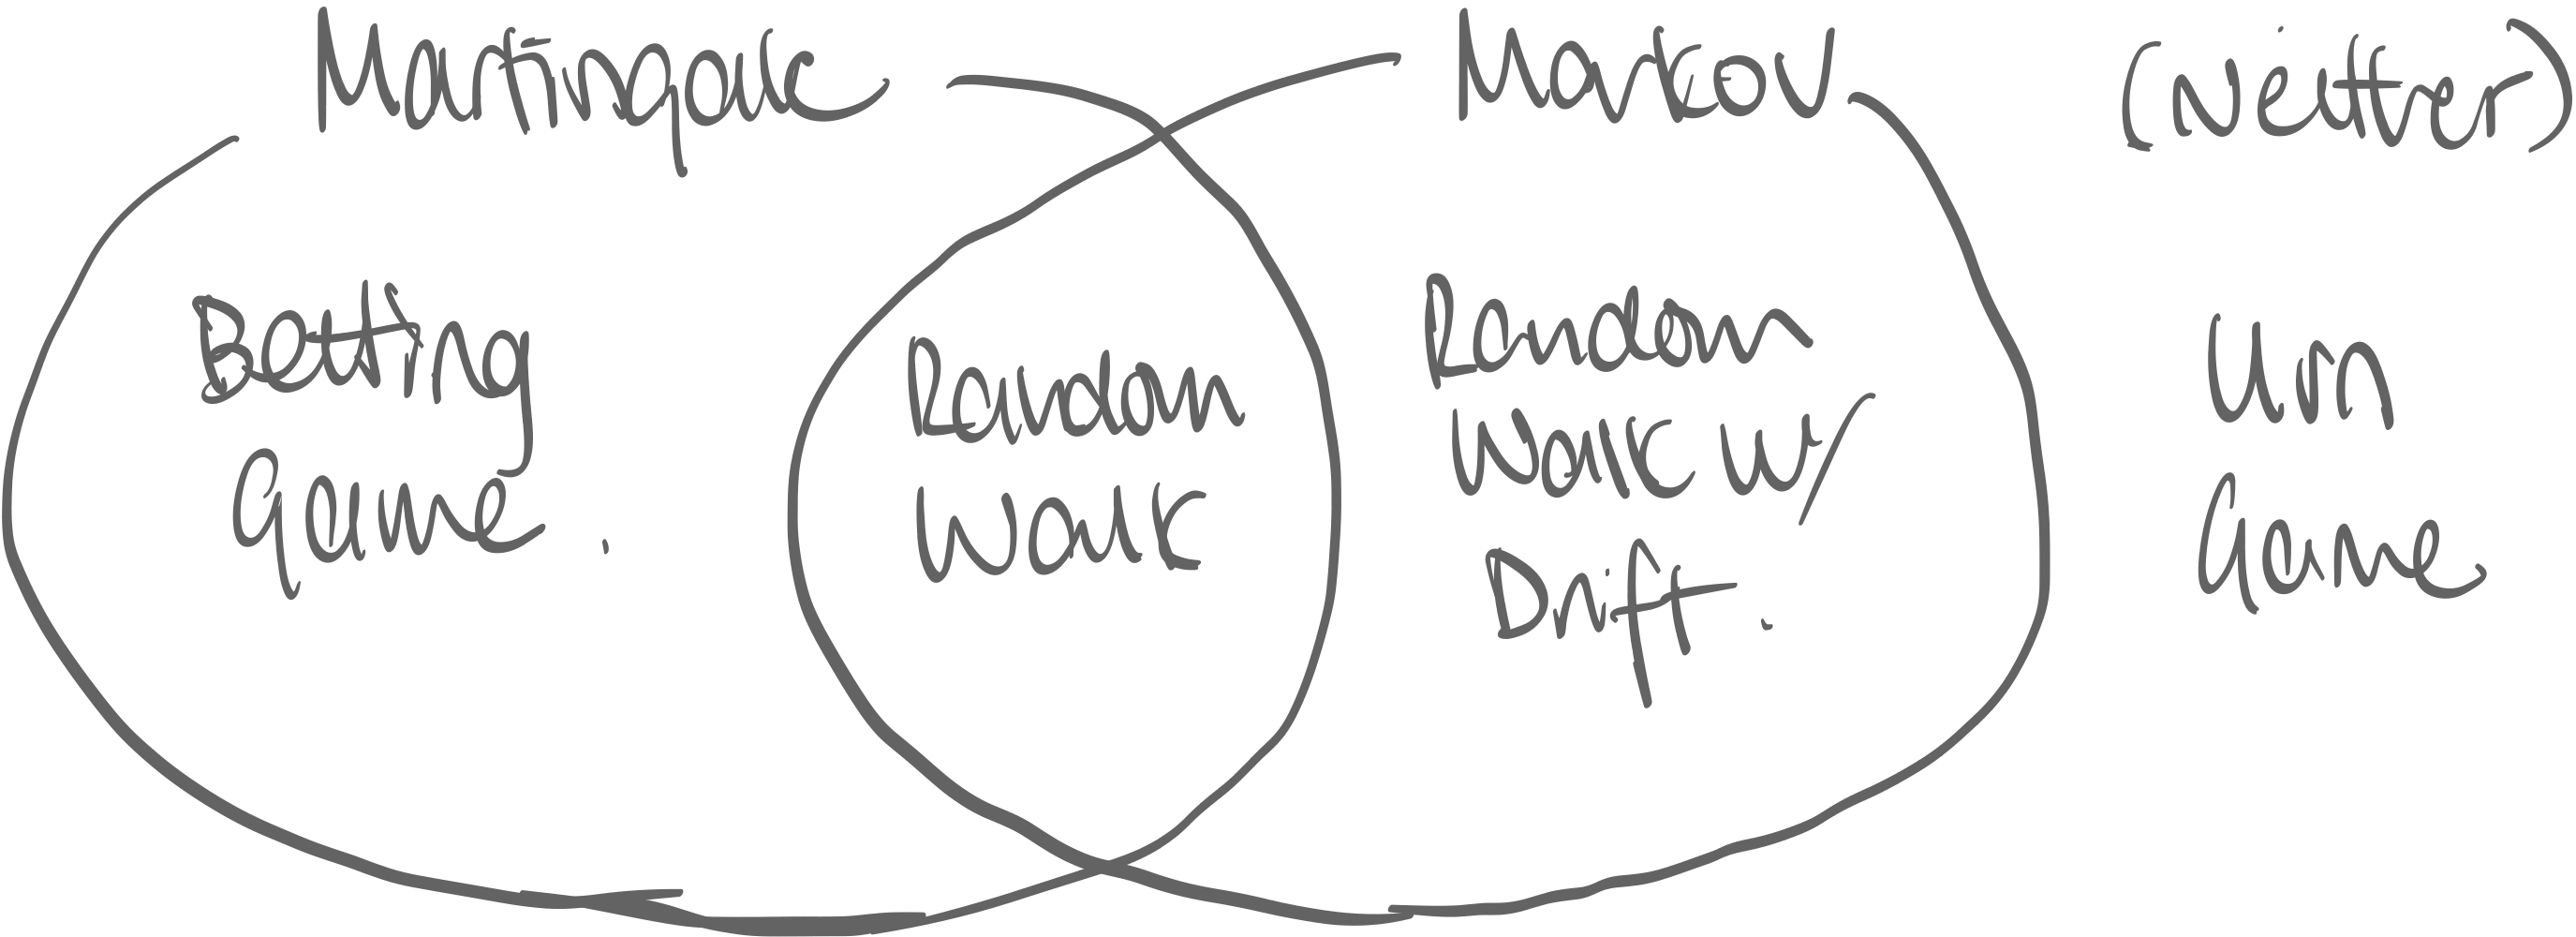 Martingale
Markov
(Neither)
Betting
game.
Random
Walk
Random
Walk w/
Drift.
Urn
Game